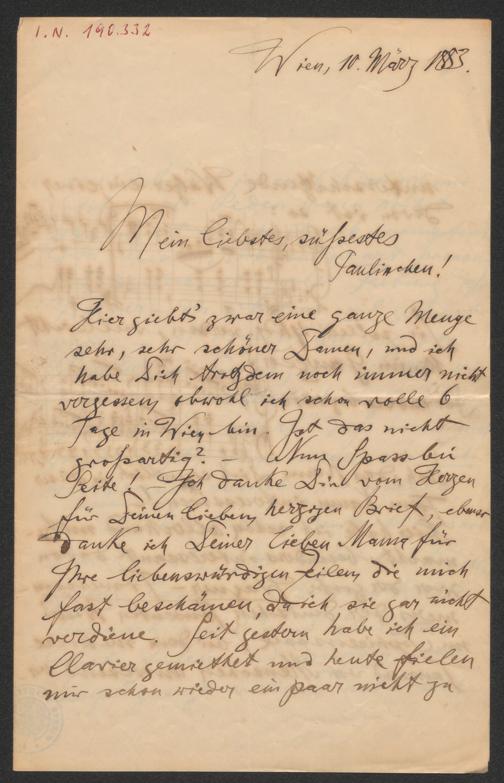 I. N. 190.332
Wien, 10. März 1883.
Mein liebstes, süßestes
Paulinchen!
Hier giebt's zwar eine ganze Menge
sehr, sehr schöner Damen, und ich
habe Dich trotzdem noch immer nicht
vergessen, obwohl ich schon volle 6
Tage in Wien bin. Ist das nicht
großartig? — Nun Spass bei
Seite! Ich danke Dir vom Herzen
für Deinen lieben, herzigen Brief, ebenso
danke ich Deiner lieben Mama für
Ihre liebenswürdigen Zeilen, die mich
fast beschämen, da ich sie gar nicht
verdiene. Seit gestern habe ich ein
Clavier gemiethet und heute fielen
mir schon wieder ein paar nicht zu